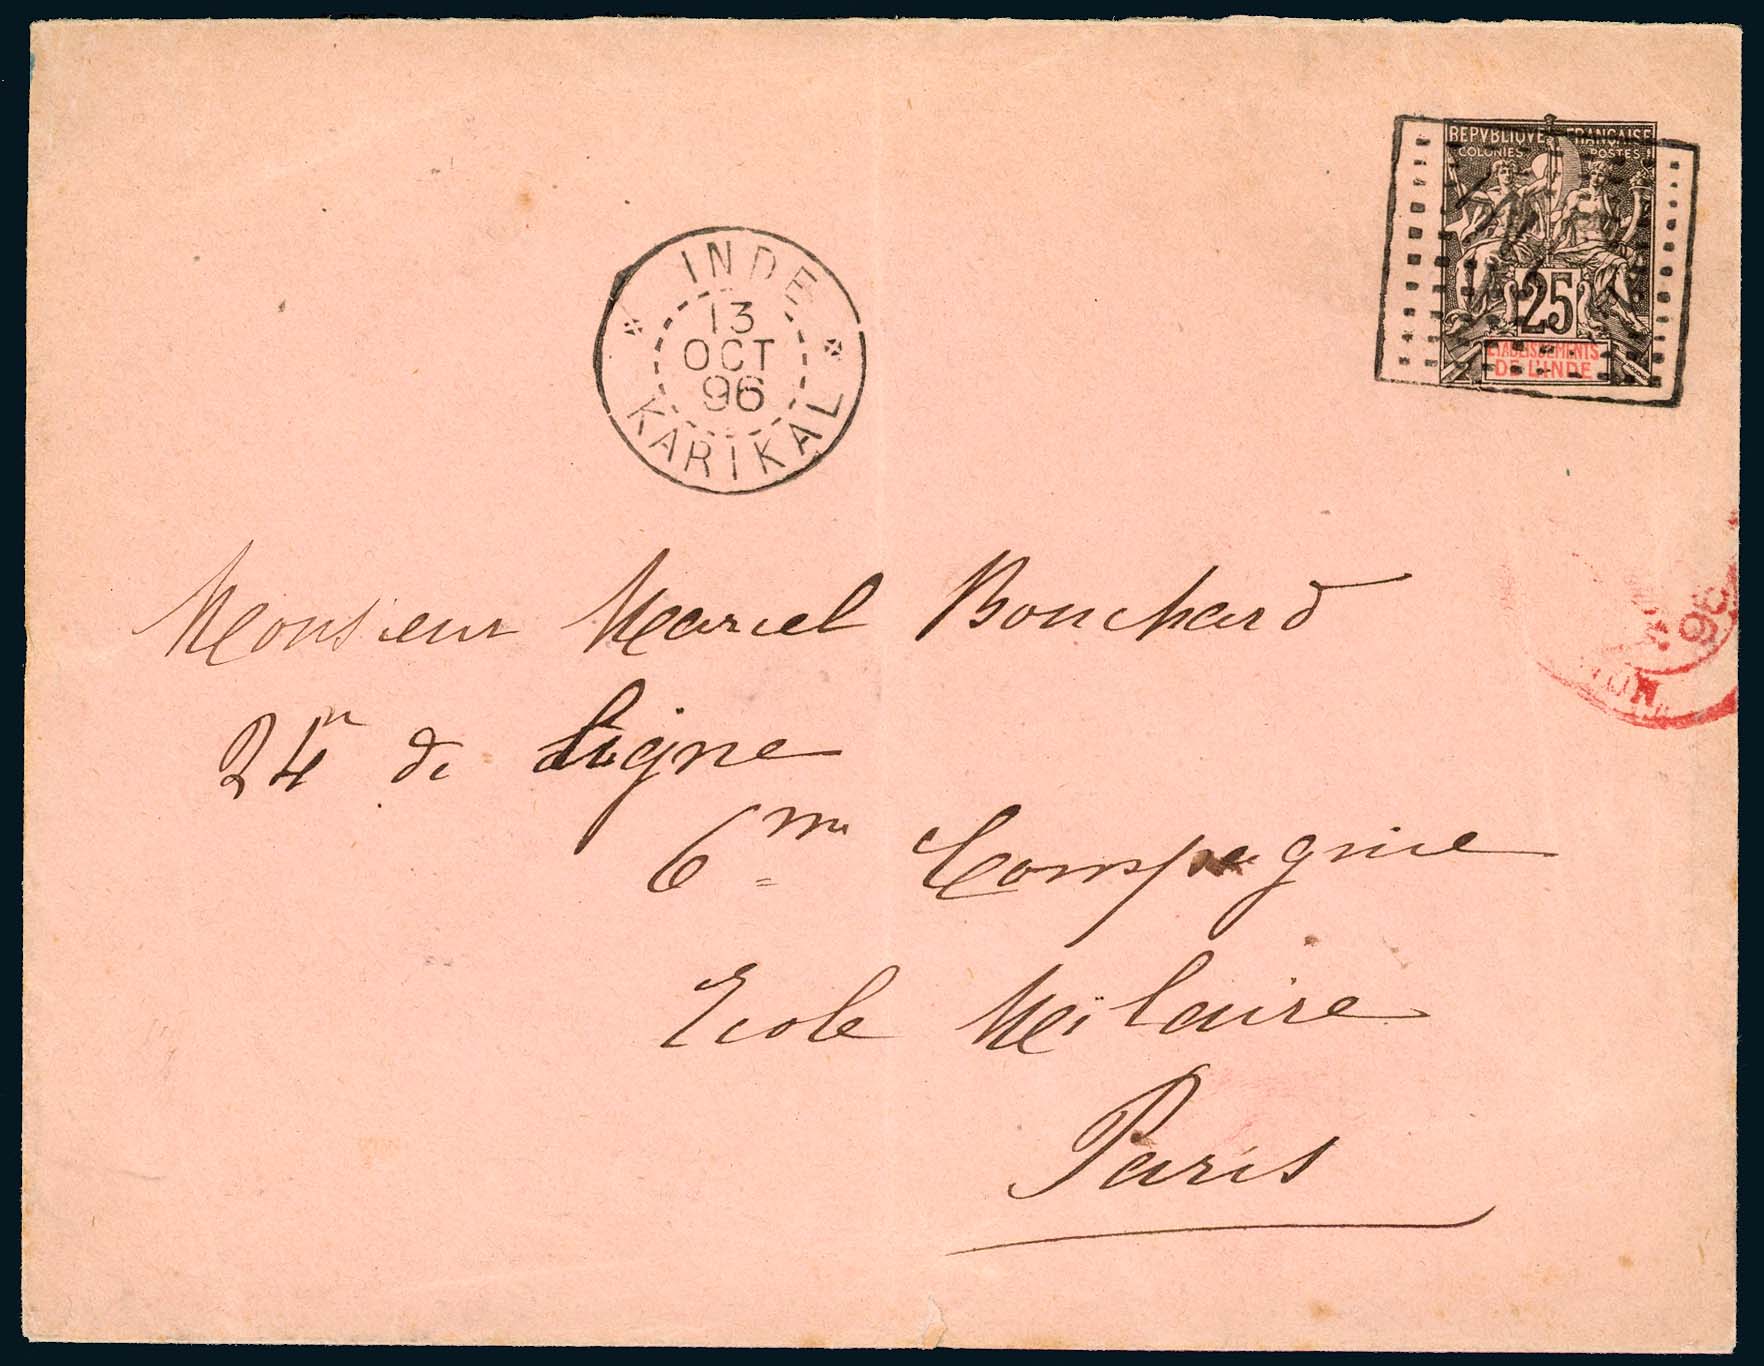 REPVBLIQVE FRANÇAISE
COLONIES POSTES
25
ETABLISSEMENTS
DE L'INDE
INDE
13
OCT
96
KARIKAL
96
Monsieur Marcel Bouchard
24e de Ligne
6me Compagnie
Ecole Militaire
Paris